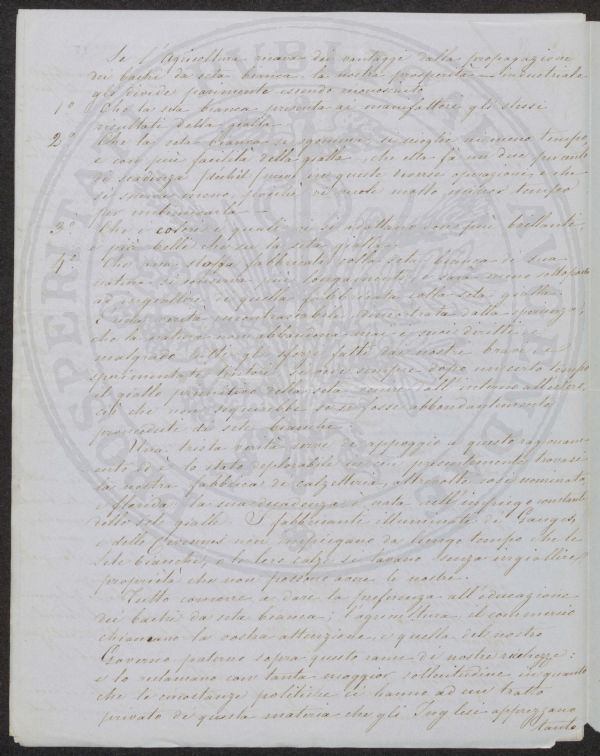 Se l'Agricoltura ricava dei vantaggi dalla propagazione
dei bachi da seta bianca, la nostra prosperità industriale
gli divide parimente essendo riconosciuto
1° Che la seta bianca presenta ai manifattori gli stessi
risultati della gialla
2° Che la seta bianca si sgomma, si scioglie in meno tempo,
e con più facilità della gialla, che ella fà un due per cento
di scadenza in queste diverse operazioni, e che
si spende meno, poichè vi vuole molto minor tempo
per
3° Che i colori i quali vi si adattano sono più brillanti,
e più belli che su la seta gialla
4° Che una stoffa fabbricata colla seta bianca di sua
natura si conserva più lungamente, e sarà meno sottoposta
ad ingiallire di quella fabbricata colla seta gialla
è una verità incontrastabile, dimostrata dalla sperienza,
che la natura non abbandona mai i suoi diritti e
malgrado tutti gli sforzi fatti dai nostri bravi e
sperimentati tintori si vede sempre dopo un certo tempo
il giallo primitivo della seta venire dall'interno all'estere,
ciò che non seguirebbe se si fosse abbondantemente
provveduti di sete bianche.
Una trista verità serve di appoggio a questo ragionam-
ento ed è lo stato deplorabile in cui presentemente trovasi
la nostra fabbrica di calzetteria, altrevolte così rinominata,
e florida: la sua decadenza è nata nell'impiego constante
delle sete gialle. I fabbricanti illuminati di Ganges,
e delle Cevennes non impiegano da lungo tempo che le
sete bianche, e le loro calze si lavano senza ingiallire,
proprietà che non possono avere le nostre.
Tutto concorre a dare la preferenza all'educazione
dei bachi da seta bianca; l'agricoltura, il commercio
chiamano la vostra attenzione, e quella del nostro
Governo paterno sopra questo ramo di nostre ricchezze:
e lo reclamano con tanta maggior sollecitudine in quanto
che le circostanze politiche ci hanno ad un tratto
privato di questa materia che gli Inglesi apprezzano
tanto